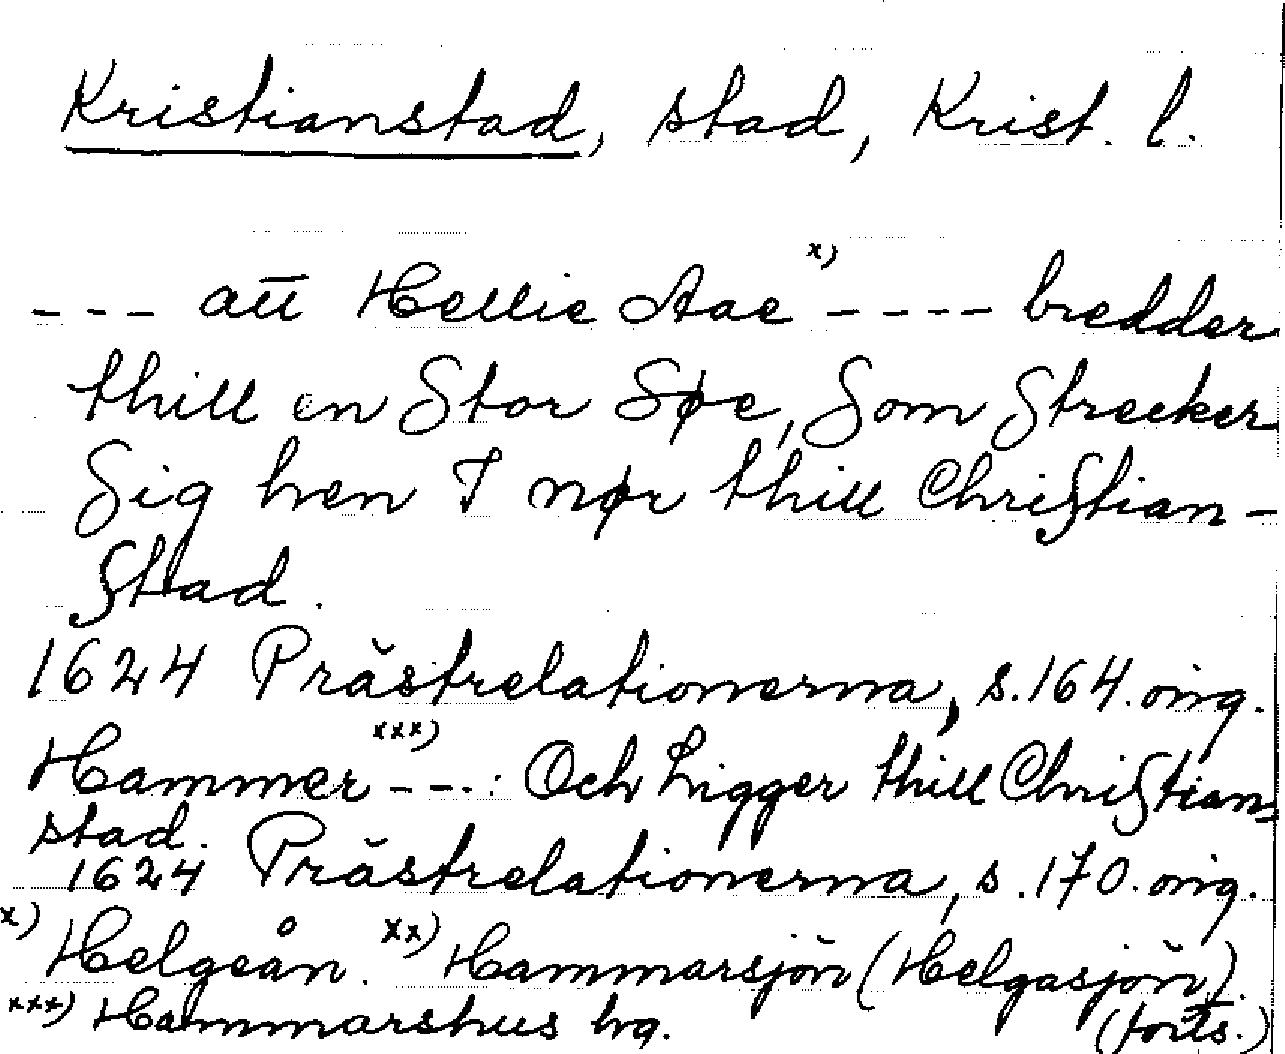 Kristianstad, stad, Krist. l.
--- att Hellie Aae x) ---- bredder
thill en Stor Søe, Som Strecker
Sig hen I nør thill Christian-
Stad.
1624 Prästrelationerna, s. 164. orig.
Hammer xxx) ---: Och Ligger thill Christian
stad.
1624 Prästrelationerna, s. 170. orig.
x) Helgeån. xx) Hammarsjön (Helgasjön).
xxx) Hammarshus hg. (forts.)